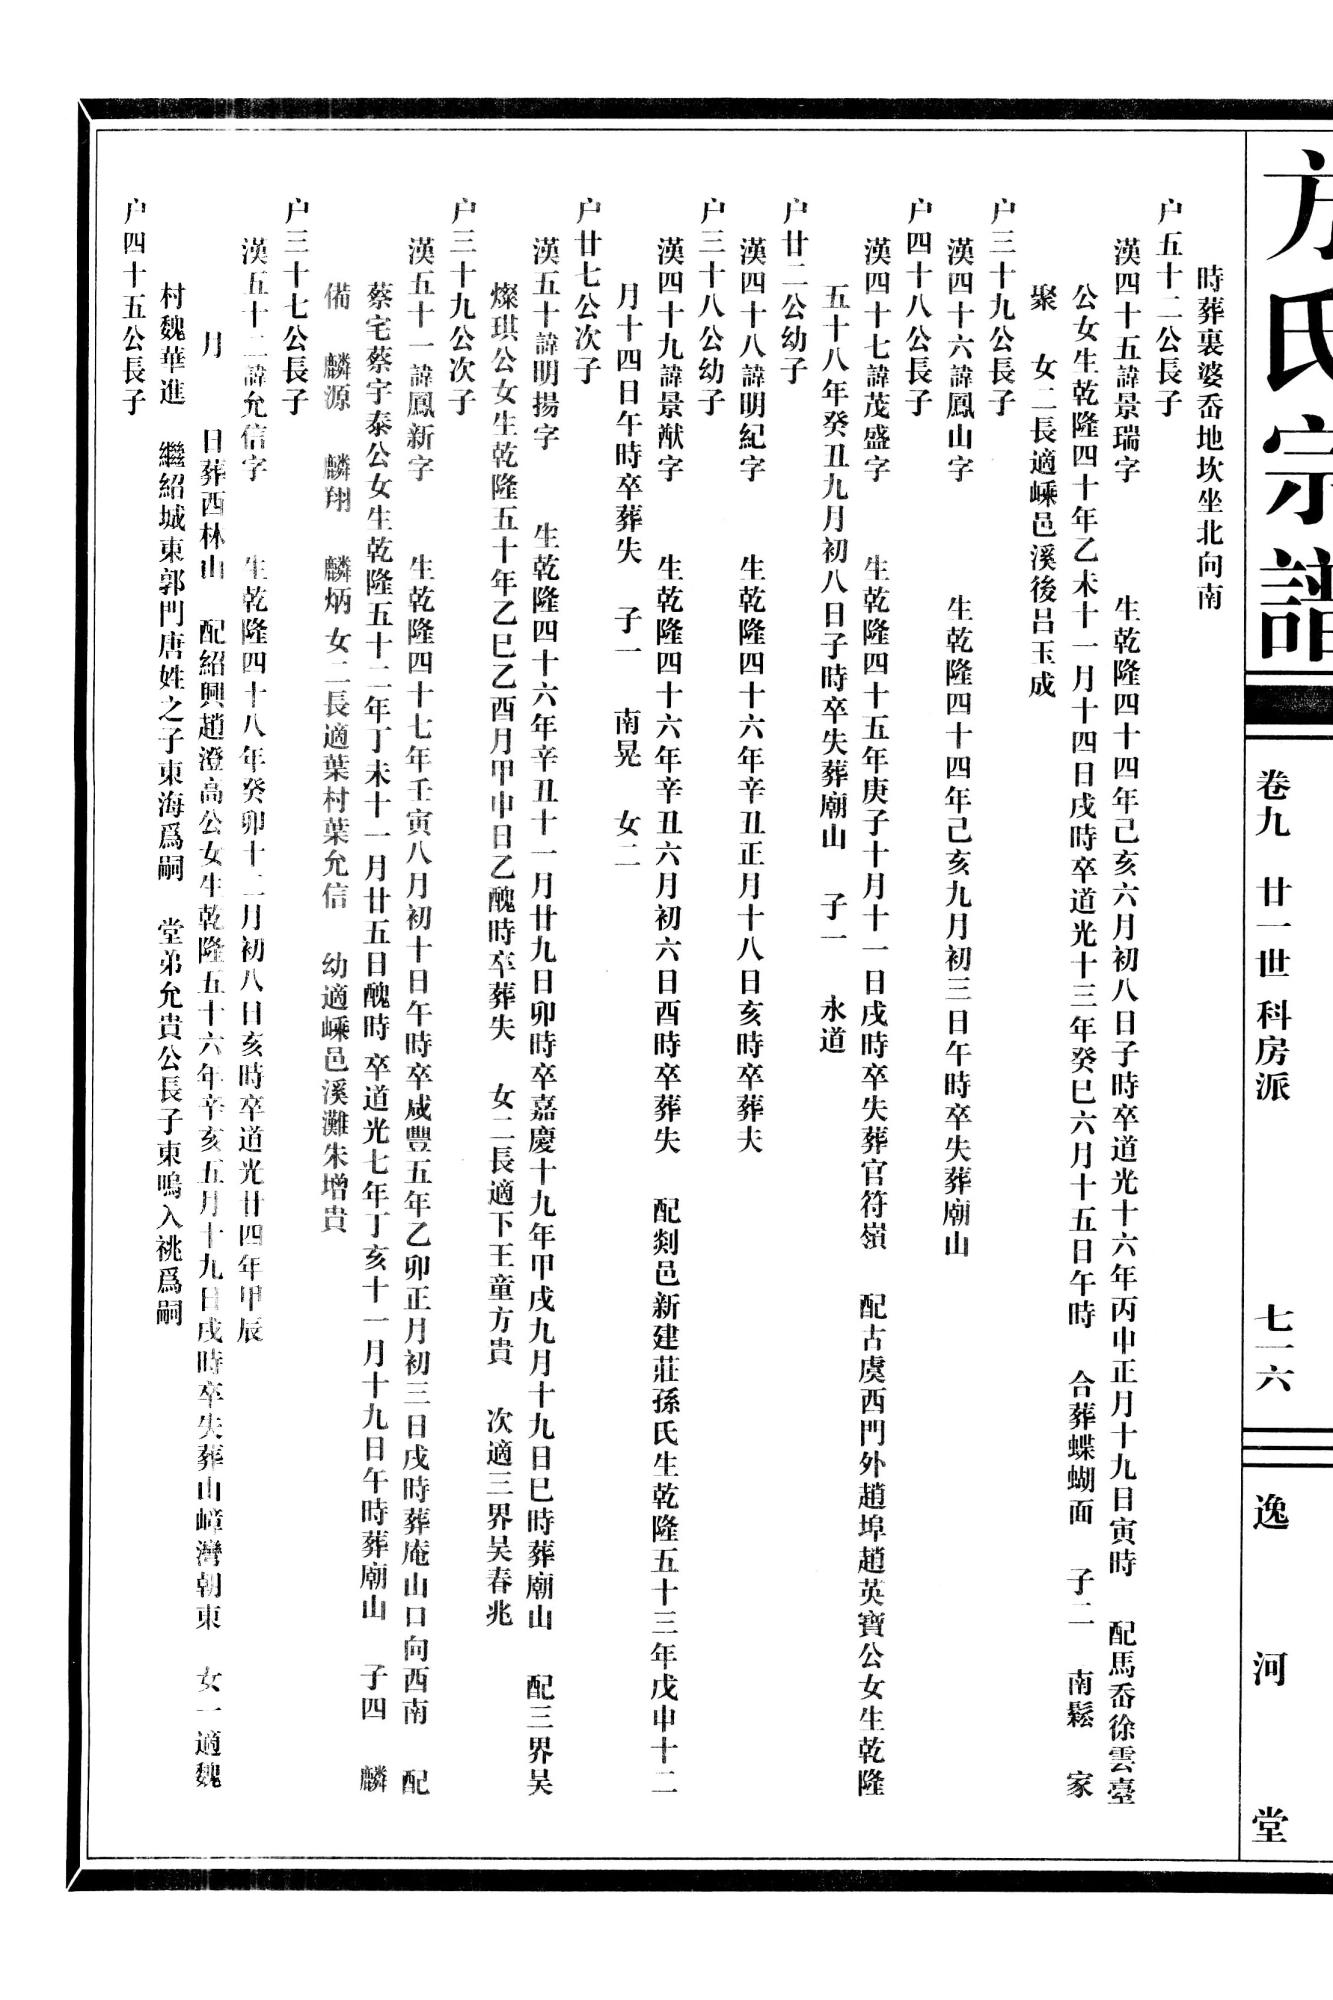 方氏宗譜
卷九 廿一世 科房派
七一六
逸河堂
時葬裏婆岙地坎坐北向南
户五十二公長子
漢四十五諱景瑞字 生乾隆四十四年己亥六月初八日子時卒道光十六年丙申正月十九日寅時 配馬岙徐雲臺
公女生乾隆四十年乙未十一月十四日戌時卒道光十三年癸巳六月十五日午時 合葬蝶蝴面 子二 南鬆 家
聚 女二長適嵊邑溪後吕玉成
户三十九公長子
漢四十六諱鳳山字 生乾隆四十四年己亥九月初三日午時卒失葬廟山
户四十八公長子
漢四十七諱茂盛字 生乾隆四十五年庚子十月十一日戌時卒失葬官符嶺 配古虞西門外趙埠趙英寶公女生乾隆
五十八年癸丑九月初八日子時卒失葬廟山 子一 永道
户廿二公幼子
漢四十八諱明紀字 生乾隆四十六年辛丑正月十八日亥時卒葬夫
户三十八公幼子
漢四十九諱景猷字 生乾隆四十六年辛丑六月初六日酉時卒葬失 配剡邑新建莊孫氏生乾隆五十三年戊申十二
月十四日午時卒葬失 子一 南晃 女二
户廿七公次子
漢五十諱明揚字 生乾隆四十六年辛丑十一月廿九日卯時卒嘉慶十九年甲戌九月十九日巳時葬廟山 配三界吴
燦琪公女生乾隆五十年乙巳乙酉月甲申日乙醜時卒葬失 女二長適下王童方貴 次適三界吴春兆
户三十九公次子
漢五十一諱鳳新字 生乾隆四十七年壬寅八月初十日午時卒咸豐五年乙卯正月初三日戌時葬庵山口向西南 配
蔡宅蔡宇泰公女生乾隆五十二年丁未十一月廿五日醜時卒道光七年丁亥十一月十九日午時葬廟山 子四 麟
備 麟源 麟翔 麟炳 女二長適葉村葉允信 幼適嵊邑溪灘朱增貴
户三十七公長子
漢五十二諱允信字 生乾隆四十八年癸卯十二月初八日亥時卒道光廿四年甲辰
月 日葬西林山 配紹興趙澄高公女生乾隆五十六年辛亥五月十九日戌時卒失葬山嶂灣朝東 女一適魏
村魏華進 繼紹城東郭門唐姓之子東海爲嗣 堂弟允貴公長子東鳴入祧爲嗣
户四十五公長子